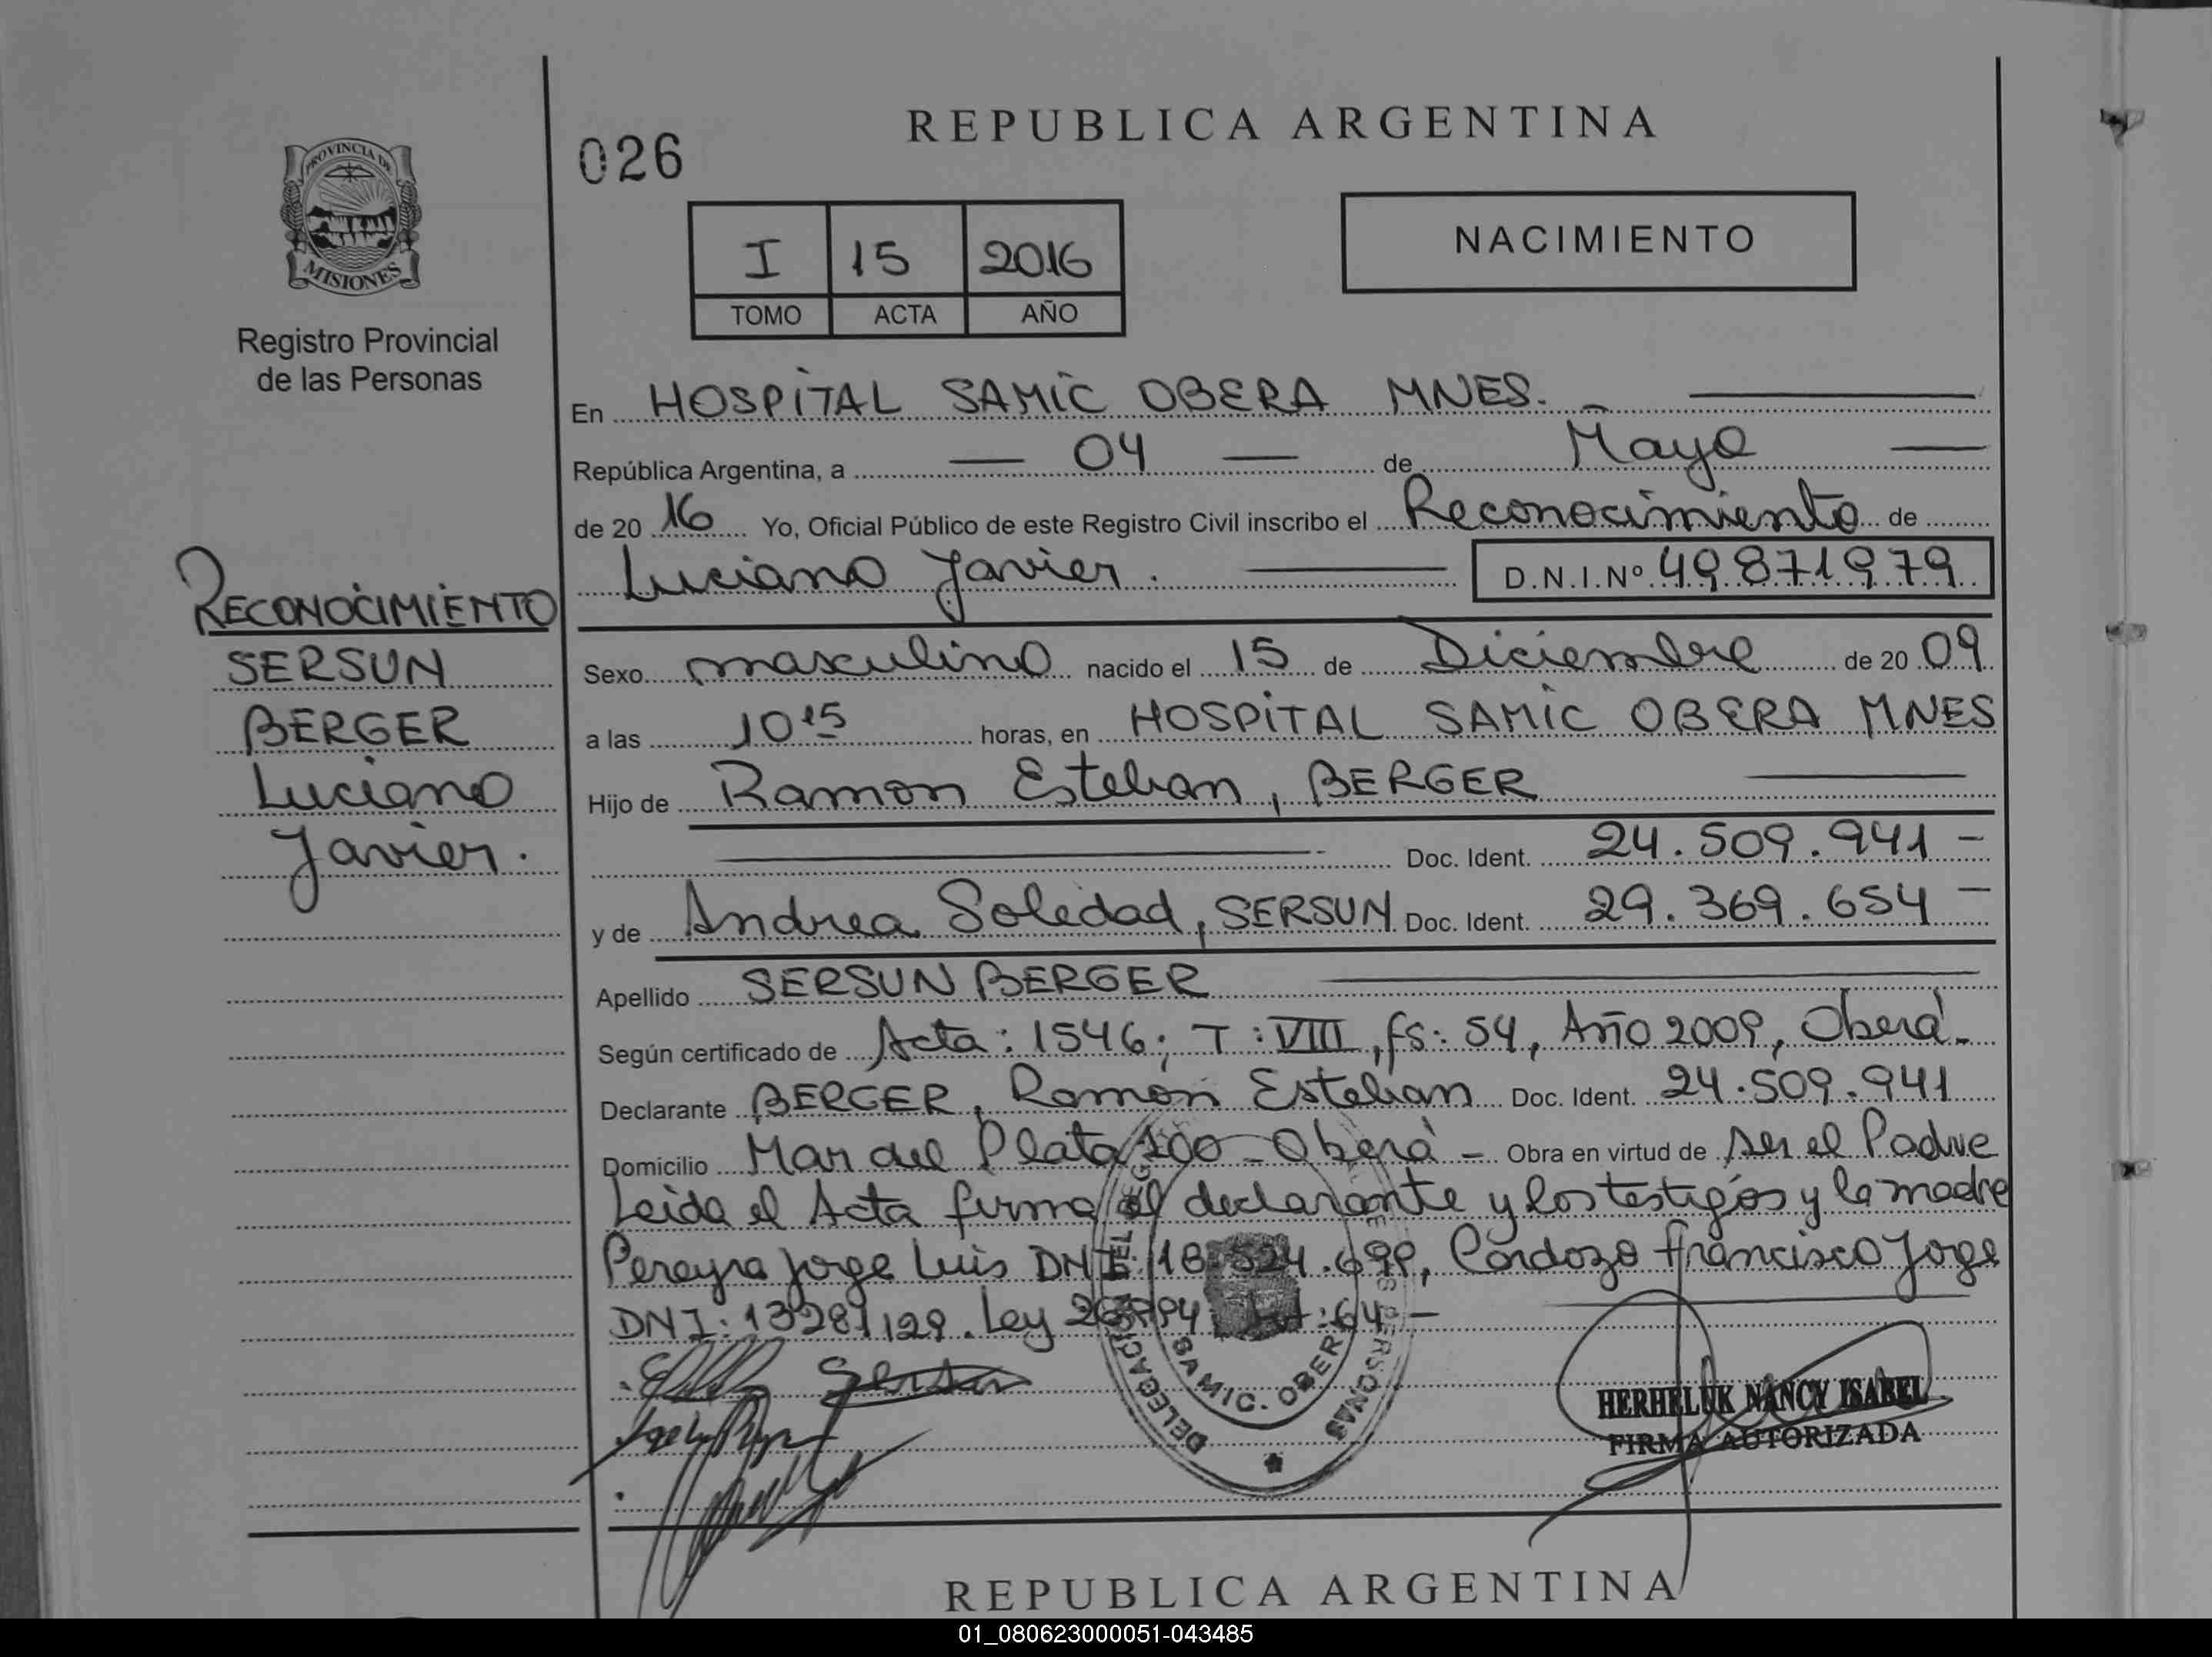 PROVINCIA DE
MISIONES
Registro Provincial
de las Personas
RECONOCIMIENTO
SERSUN
BERGER
Luciano
Javier.
026
REPUBLICA ARGENTINA
I 15 2016
TOMO ACTA AÑO
NACIMIENTO
En HOSPITAL SAMIC OBERA MNES. -
República Argentina, a — 04 — de Mayo —
de 20 16 Yo, Oficial Público de este Registro Civil inscribo el Reconocimiento de
Luciano Javier. D.N.I.Nº 49871979
Sexo masculino nacido el 15 de Diciembre de 20 09
a las 10 15 horas, en HOSPITAL SAMIC OBERA MNES
Hijo de Ramon Esteban, BERGER
Doc. Ident. 24.509.941 -
y de Andrea Soledad, SERSUN Doc. Ident. 29.369.654 -
Apellido SERSUN BERGER
Según certificado de Acta: 1546; T: VIII, fs: 54, Año 2009, Oberá.
Declarante BERGER, Ramón Esteban Doc. Ident. 24.509.941
Domicilio Mar del Plata 200 - Oberá - Obra en virtud de ser el Padre
Leida el Acta firma el declarante y los testigos y la madre
Pereyra Jorge Luis DNI: 524. Cardozo Francisco Jorge
DNI: 13281129. Ley :64 -
DELEGACION SAMIC. OBERA PERSONAS
HERHELUK NANCY ISABEL
FIRMA AUTORIZADA
REPUBLICA ARGENTINA
01_080623000051-043485